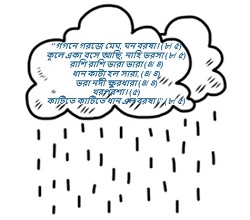 "গগনে গরজে মেঘ, ঘন বরষা। (৮/৫)
কূলে একা বসে আছি, নাহি ভরসা। (৮/৫)
রাশি রাশি ভারা ভারা (৪/৪)
ধান কাটা হল সারা, (৪/৪)
ভরা নদী ক্ষুরধারা (৪/৪)
খরপরশা। (৫)
কাটিতে কাটিতে ধান এল বরষা।" (৮/৫)